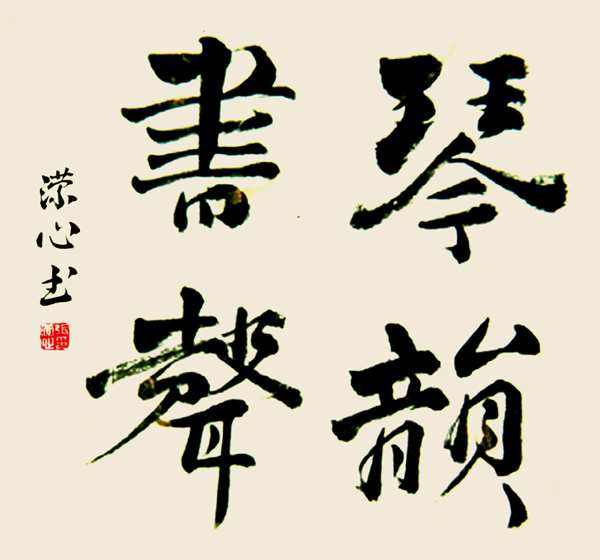 琴韻
書聲
心书